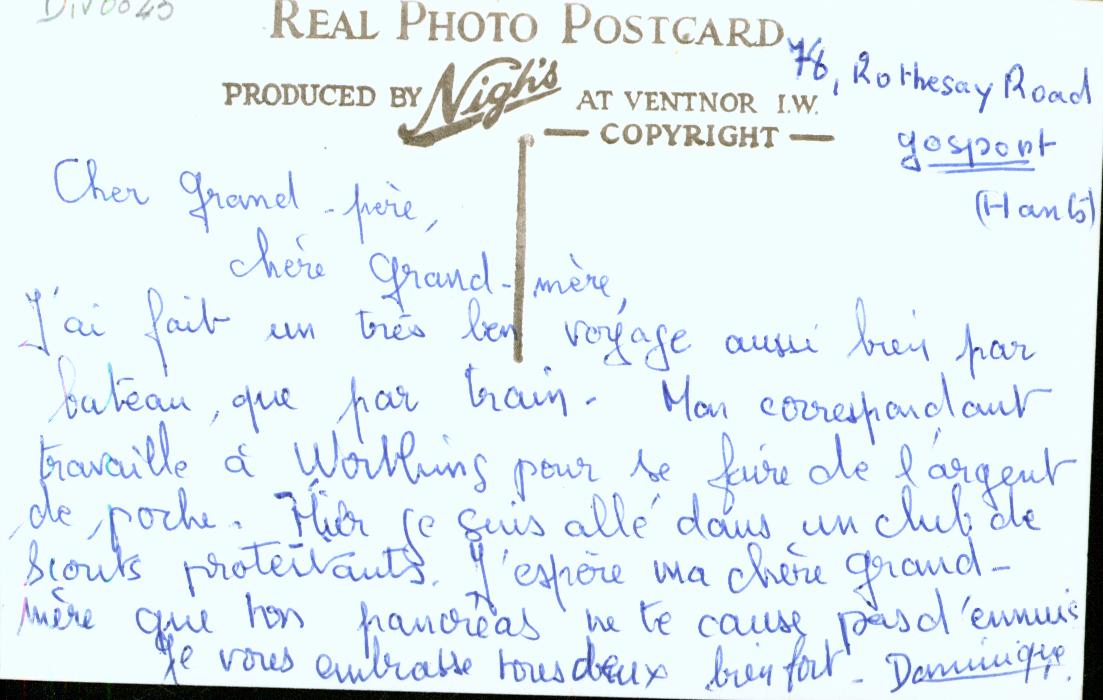 Div0045
REAL PHOTO POSTCARD
PRODUCED BY Nigh's AT VENTNOR I.W.
— COPYRIGHT —
78, Rothesay Road
Gosport
(Hants)
Cher Grand-père,
chère Grand-mère,
J'ai fait un très bon voyage aussi bien par
bateau, que par train. Mon correspondant
travaille à Worthing pour se faire de l'argent
de poche. Hier je suis allé dans un club de
scouts protestants. J'espère ma chère Grand-
mère que ton pancréas ne te cause pas d'ennuis
Je vous embrasse tous deux bien fort. Dominique.